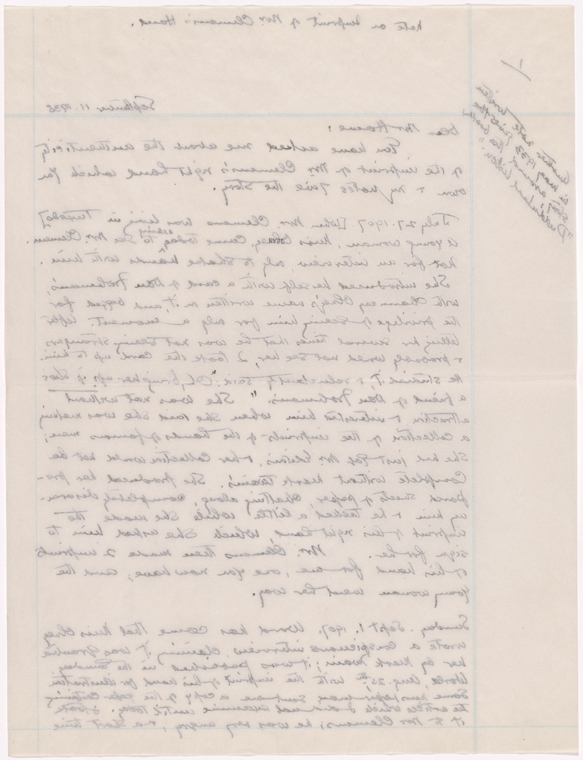 Note on imprint of Mr Clemens's Hand.
1
note written
in May 1938
September 11. 1936
Dear Mr
You have asked me about the authenticity
of the imprint of Mr Clemens's right hand which you
own & my notes give the story.
July 27. 1907 [When Mr Clemens was living in Tuxedo]
A young woman, Miss Olney, came today asking to see Mr Clemens
not for an interview, only to shake hands with him.
She introduced herself with a card of Dan Frohman's,
with Channing Olney's name written on it, and begged for
the privilege of seeing him for only a moment. After
telling her several times that he was not seeing strangers
& probably would not see her, I took the card up to him.
He studied it, & reluctantly said: "Oh, bring her up, if she's
a friend of Dan Frohman's." She was not without
attraction & interested him when she said she was making
a collection of the imprints of the hands of famous men;
She had just got Mr Edison's, & her collection would not be
complete without Mark Twain's. She produced her pre-
pared sheets of paper chatting along, completely disarm-
ing him & he talked a little while she made the
imprint of his right hand, which she asked him to
sign for her. Mr Clemens then made 2 imprints
of his hand for me, one you now have, and the
young woman went her way.
Sunday. Sept 1, 1907. Word has come that Miss Olney
wrote a conspicuous interview claiming it was granted
her by Mark Twain; it was published in the Sunday
World Aug. 25th with the imprint of his hand for illustration
Some newspaper man sent me a copy of the page containing
the article which I did not examine until today. I took
it to Mr Clemens; he was very angry, & a short time